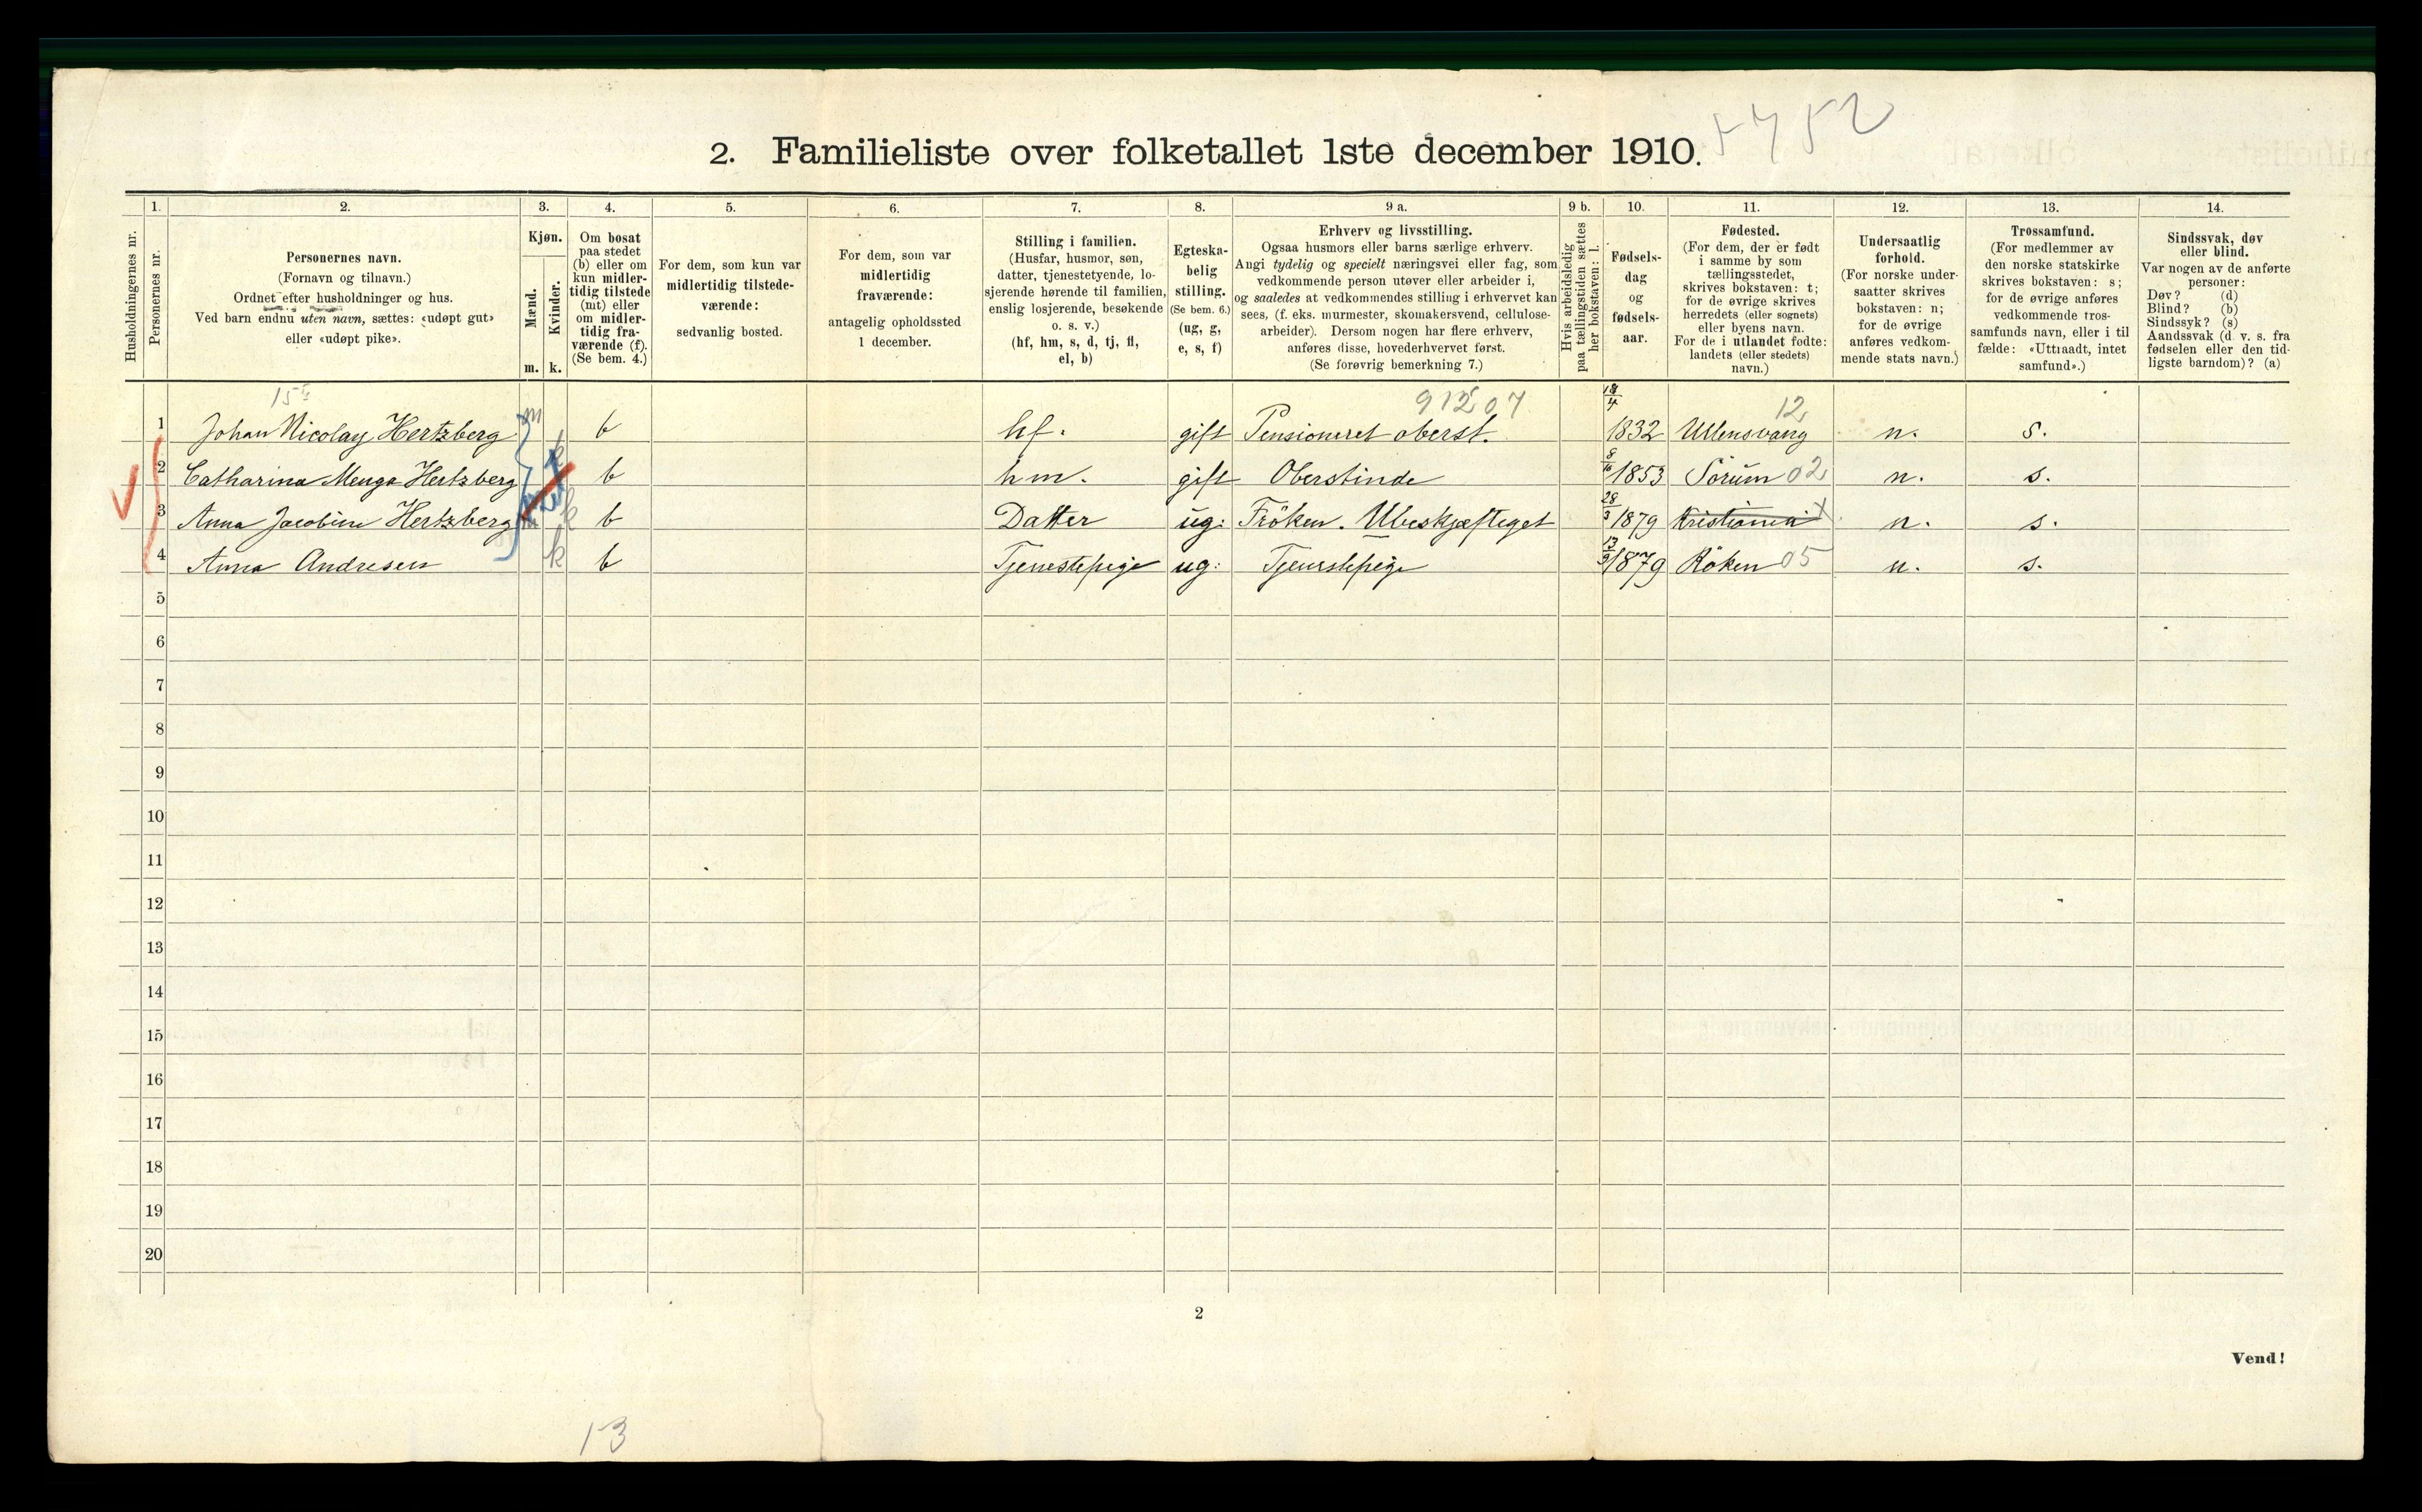 5752
2. Familieliste over folketallet 1ste december 1910.
Husholdningernes nr.
1.
Personernes nr.
2.
Personernes navn.
(Fornavn og tilnavn.)
Ordnet efter husholdninger og hus.
Ved barn endnu uten navn, sættes: «udøpt gut»
eller «udøpt pike».
3.
Kjøn.
Mænd.
Kvinder.
m. k.
4.
Om bosat
paa stedet
(b) eller om
kun midler-
tidig tilstede
(mt) eller
om midler-
tidig fra-
værende (f).
(Se bem. 4.)
5.
For dem, som kun var
midlertidig tilstede-
værende:
sedvanlig bosted.
6.
For dem, som var
midlertidig
fraværende:
antagelig opholdssted
1 december.
7.
Stilling i familien.
(Husfar, husmor, søn,
datter, tjenestetyende, lo-
sjerende hørende til familien,
enslig losjerende, besøkende
o. s. v.)
(hf, hm, s, d, tj, fl,
el, b)
8.
Egteska-
belig
stilling.
(Se bem. 6.)
(ug, g,
e, s, f)
9 a.
Erhverv og livsstilling.
Ogsaa husmors eller barns særlige erhverv.
Angi tydelig og specielt næringsvei eller fag, som
vedkommende person utøver eller arbeider i,
og saaledes at vedkommendes stilling i erhvervet kan
sees, (f. eks. murmester, skomakersvend, cellulose-
arbeider). Dersom nogen har flere erhverv,
anføres disse, hovederhvervet først.
(Se forøvrig bemerkning 7.)
9 b.
Hvis arbeidsledig
paa tællingstiden sættes
her bokstaven: l.
10.
Fødsels-
dag
og
fødsels-
aar.
11.
Fødested.
(For dem, der er født
i samme by som
tællingsstedet,
skrives bokstaven: t;
for de øvrige skrives
herredets (eller sognets)
eller byens navn.
For de i utlandet fødte:
landets (eller stedets)
navn.)
12.
Undersaatlig
forhold.
(For norske under-
saatter skrives
bokstaven: n;
for de øvrige
anføres vedkom-
mende stats navn.)
13.
Trossamfund.
(For medlemmer av
den norske statskirke
skrives bokstaven: s;
for de øvrige anføres
vedkommende tros-
samfunds navn, eller i til
fælde: «Uttraadt, intet
samfund».)
14.
Sindssvak, døv
eller blind.
Var nogen av de anførte
personer:
Døv? (d)
Blind? (b)
Sindssyk? (s)
Aandssvak (d. v. s. fra
fødselen eller den tid-
ligste barndom)? (a)
91207 12
1 Johan Nicolay Hertzberg m b hf. gift Pensioneret oberst. 18/4 1832 Ullensvang n. s.
2 Catharina Menga Hertzberg k b hm. gift Oberstinde 8/10 1853 Sörum 02 n. s.
3 Anna Jacobine Hertzberg k b Datter ug: Fröken. Ubeskjæftiget 28/3 1879 Kristiania t n. s.
4 Anna Andresen k b Tjenestepige ug: Tjenestepige 13/9 1879 Röken 05 n. s.
5
6
7
8
9
10
11
12
13
14
15
16
17
18
19
20
2
Vend!
13